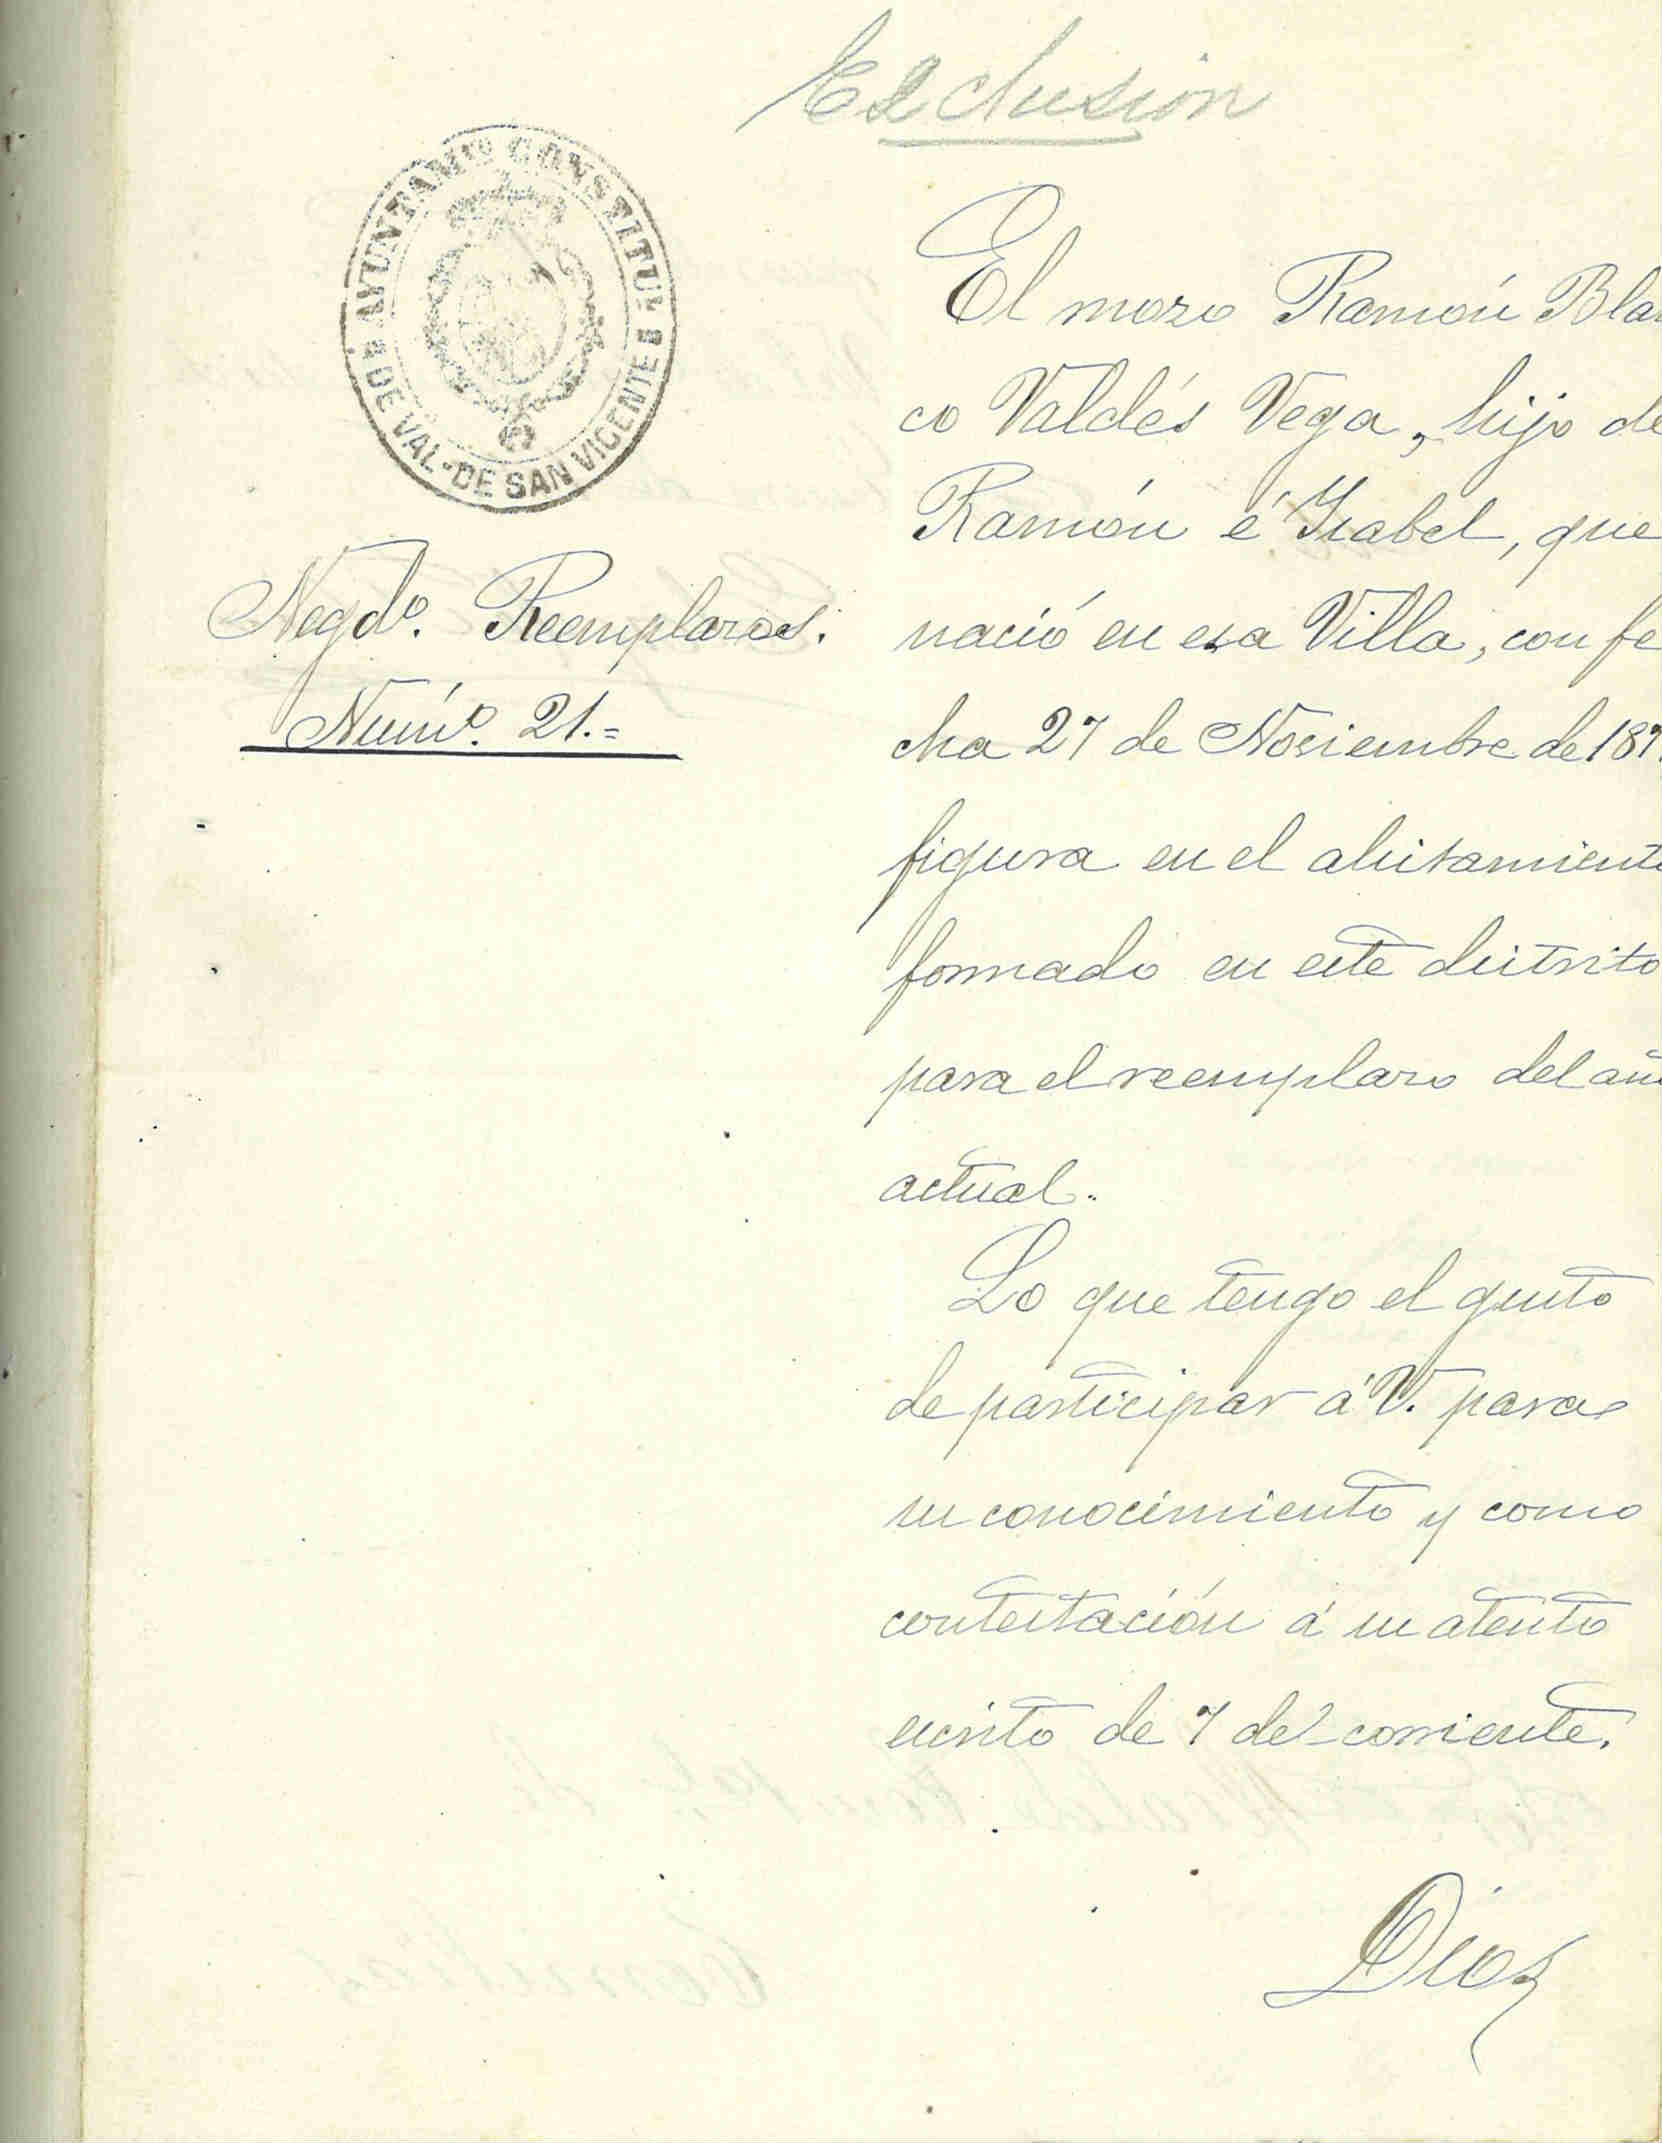 Exclusion
AYUNTAMTO CONSTITUL
DE VAL-DE SAN VICENTE
Negdo. Reemplazos.
Númo. 21.=
El mozo Ramón Blan
co Valdés Vega, hijo de
Ramón é Isabel, que
nació en esa Villa, con fe
cha 27 de Noviembre de 187
figura en el alistamiento
formado en este distrito
para el reemplazo del año
actual.
Lo que tengo el gusto
de participar á V. para
su conocimiento y como
contestación á su atento
escrito de 7 del corriente.
Dios